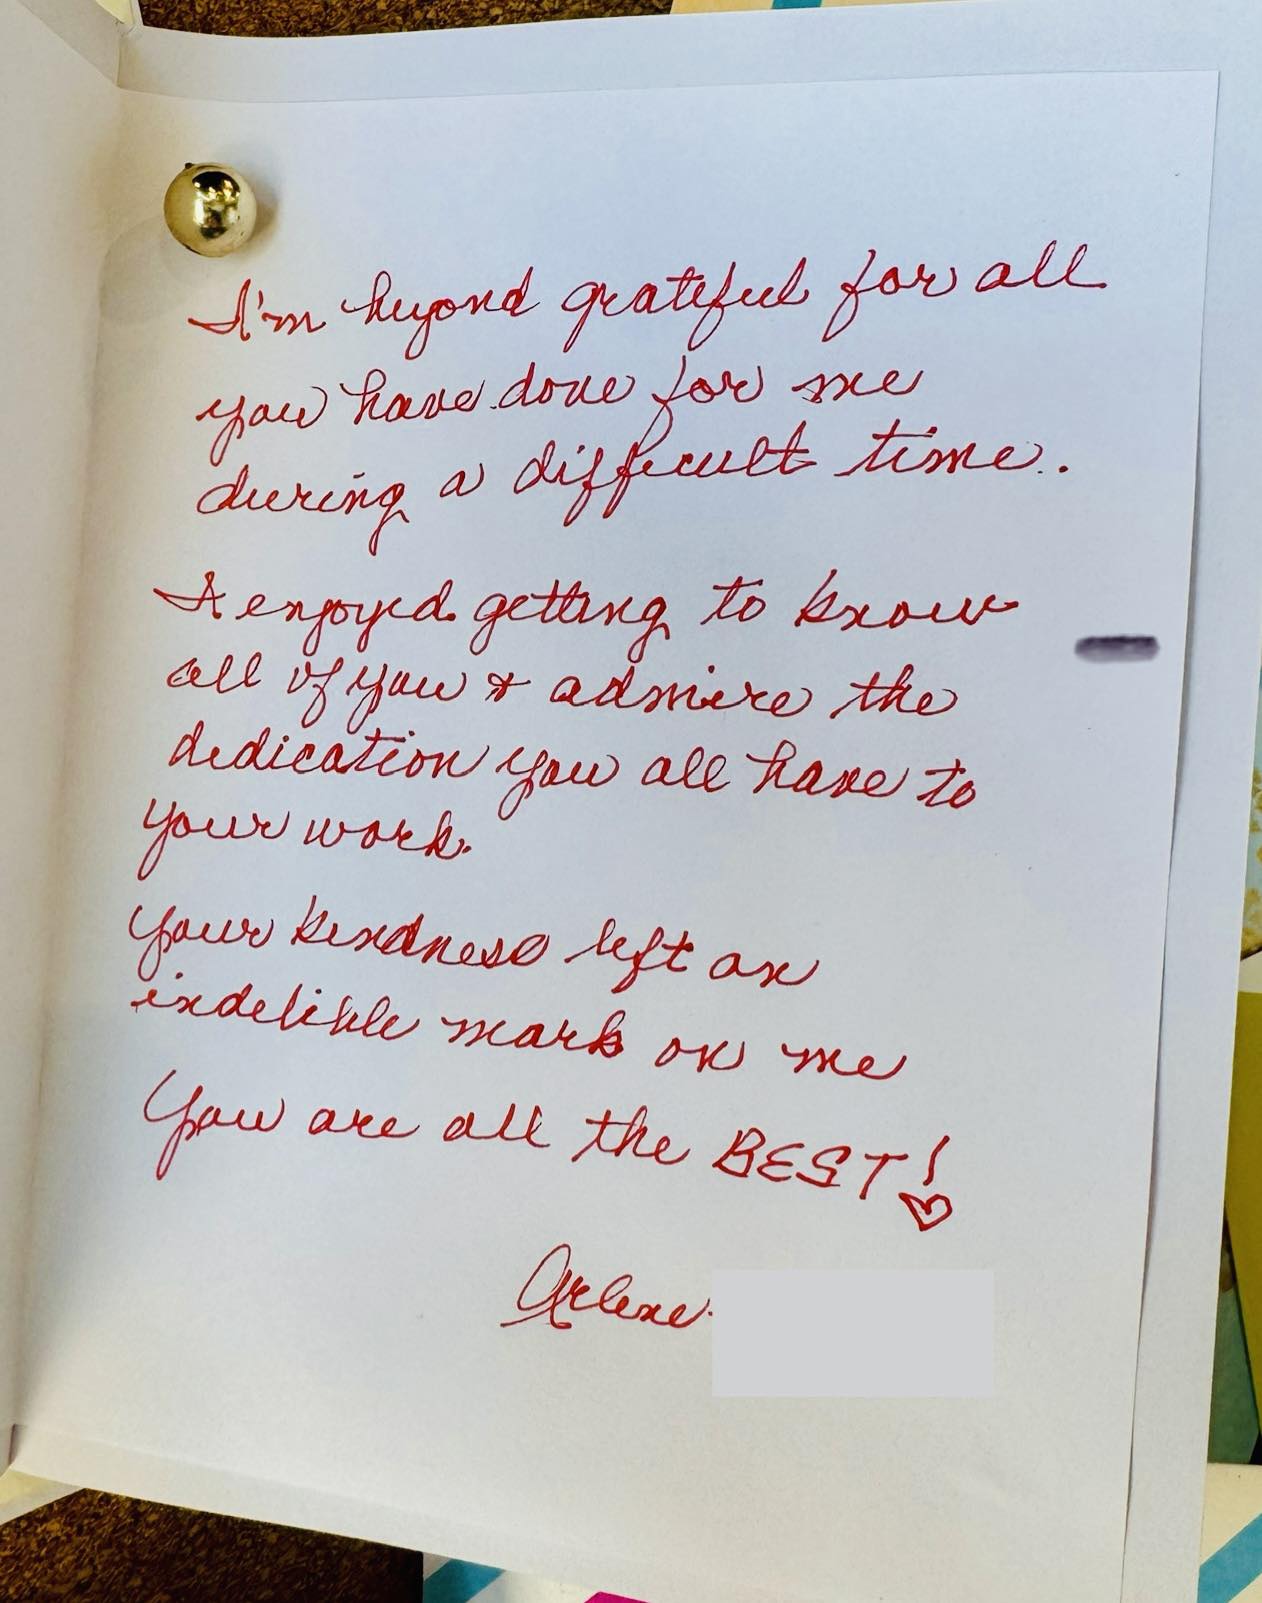 I'm beyond grateful for all
you have done for me
during a difficult time.
I enjoyed getting to know
all of you & admire the
dedication you all have to
your work.
Your kindness left an
indelible mark on me
You are all the BEST!
Arlene